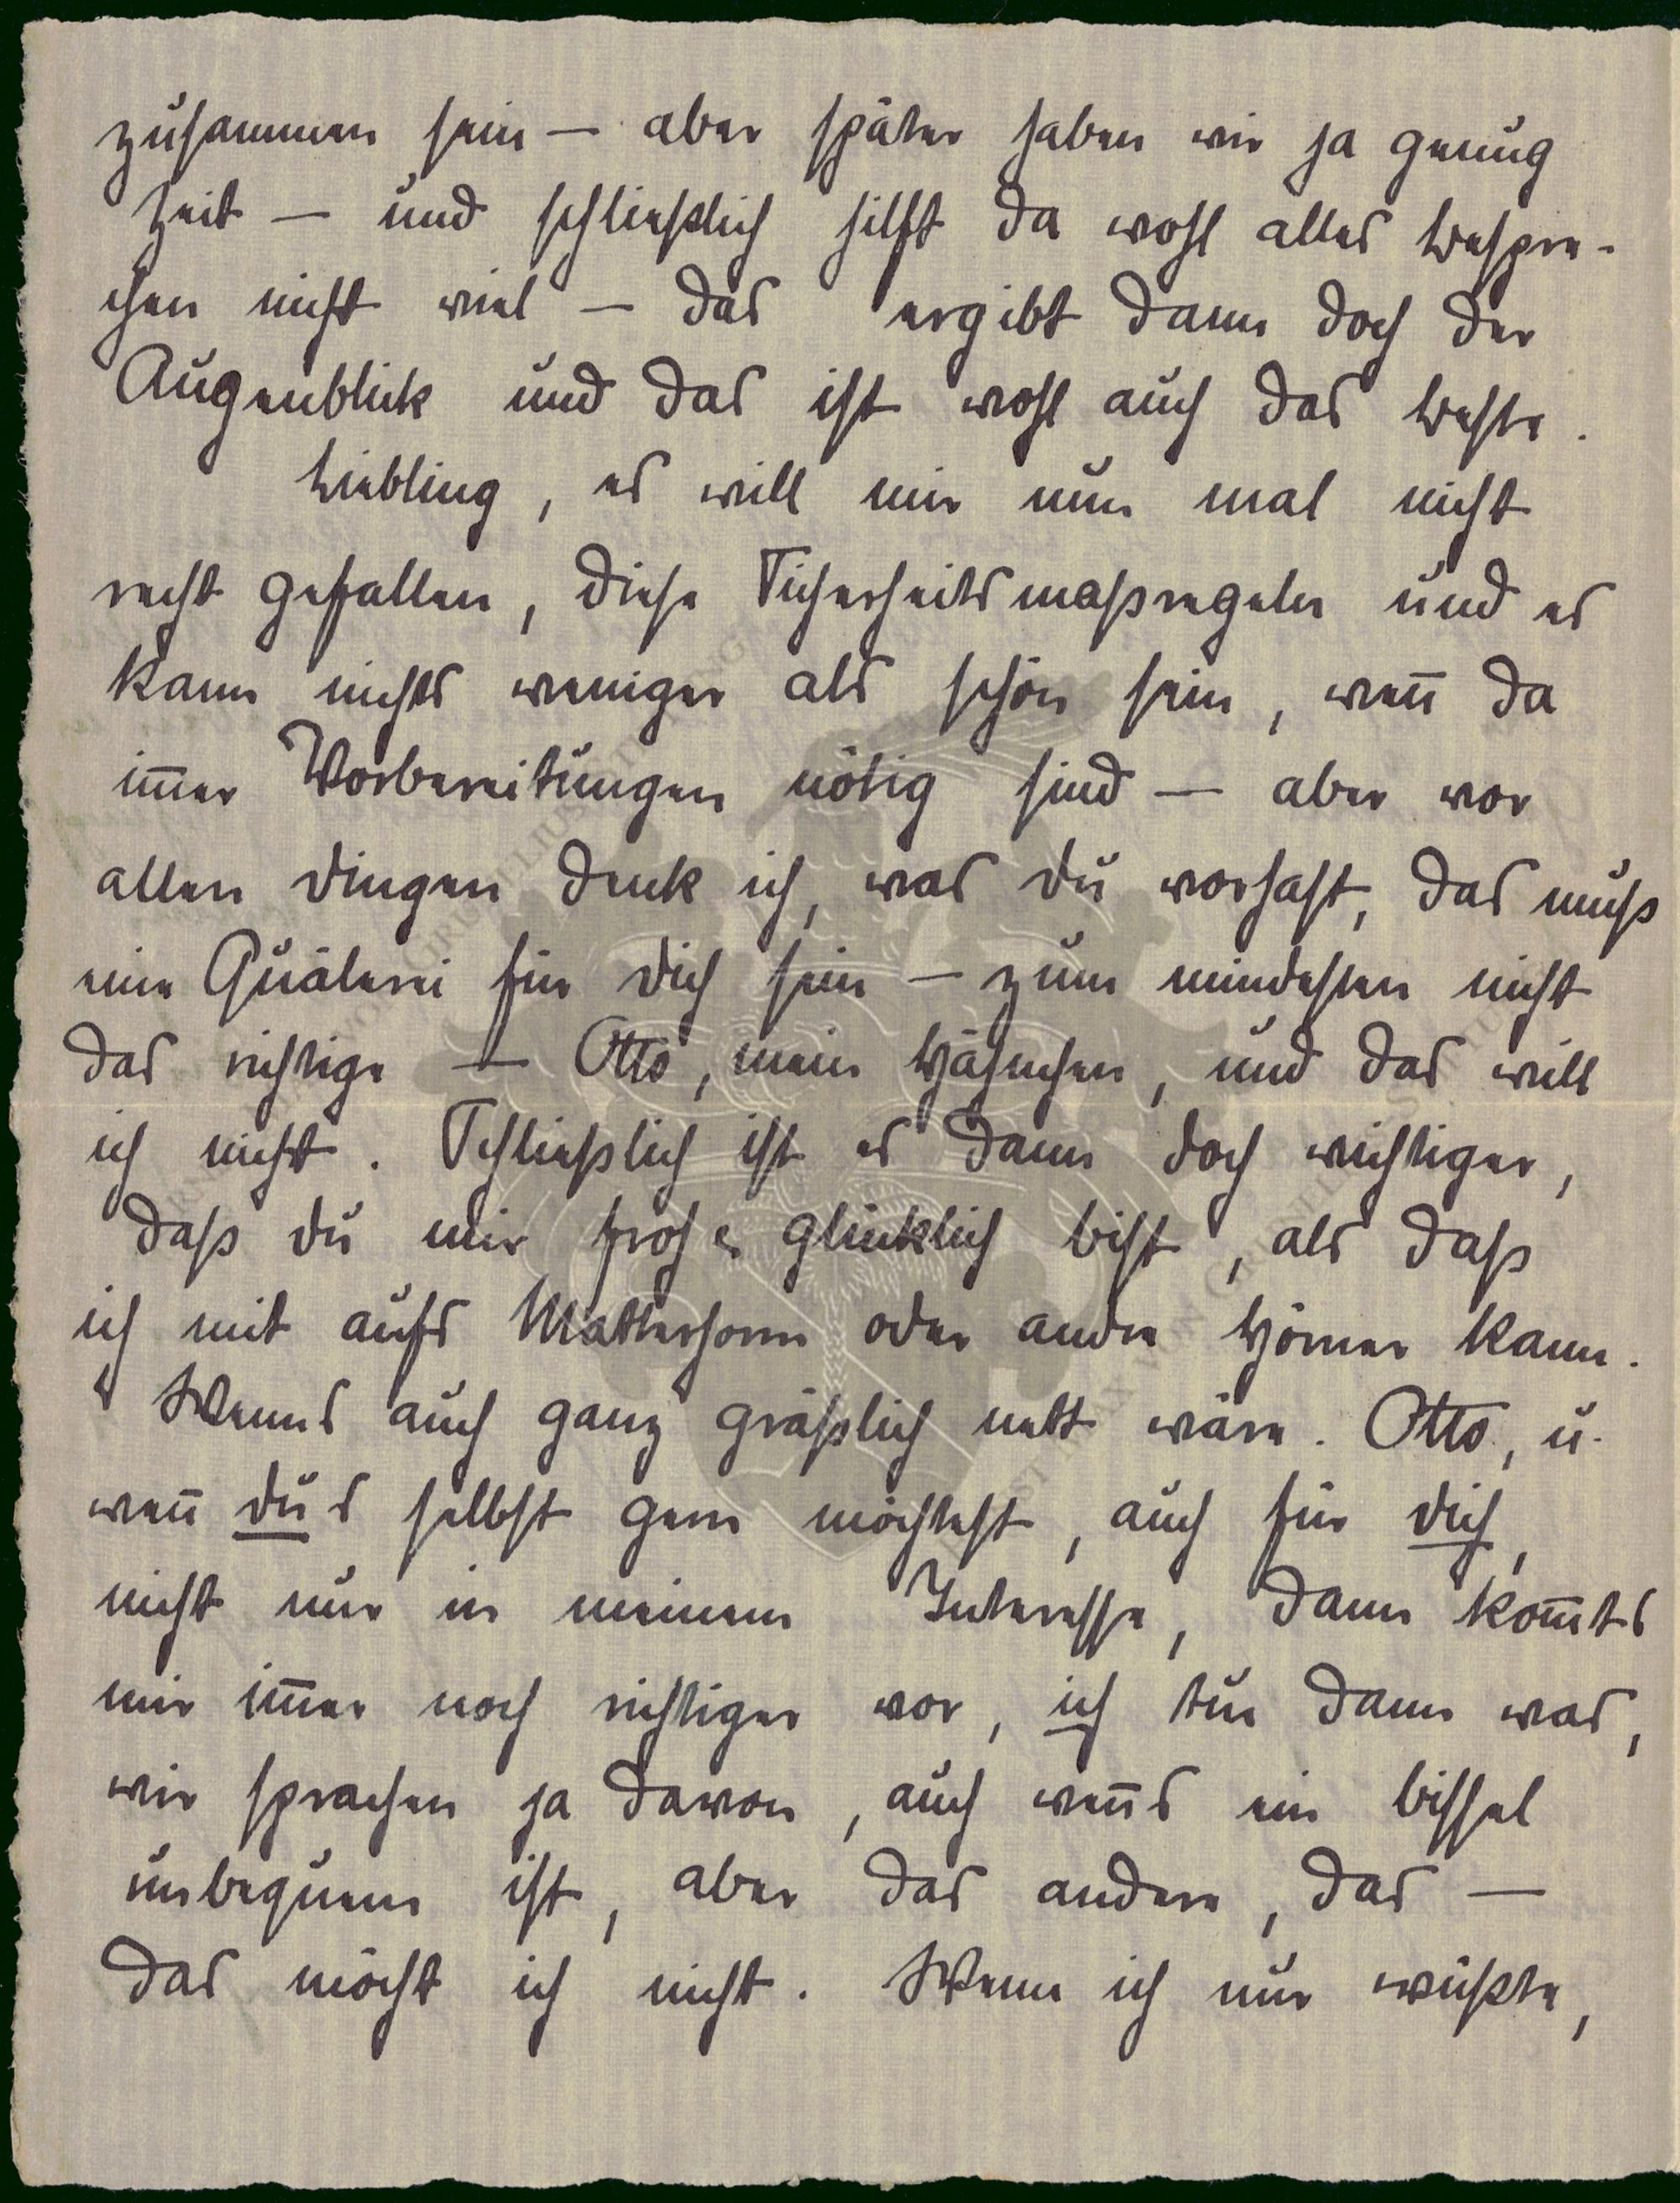 zusammen sein — aber später haben wir ja genug
Zeit — und schließlich hilft da wohl alles Bespre-
chen nicht viel — das ergibt dann doch der
Augenblick und das ist wohl auch das Beste.
Liebling, es will mir nun mal nicht
recht gefallen, diese Sicherheitsmaßregeln und es
kann nichts weniger als schön sein, wen̅ da
im̅er Vorbereitungen nötig sind — aber vor
allen Dingen denk ich, was Du vorhast, das muß
eine Quälerei für Dich sein — zum mindesten nicht
das richtige — Otto, mein Hähnchen, und das will
ich nicht. Schließlich ist es dann doch wichtiger,
daß Du mir froh & glücklich bist, als daß
ich mit aufs Matterhorn oder andre Hörner kann.
Wenns auch ganz gräßlich nett wäre. Otto, u.
wen̅ Du's selbst gern möchtest, auch für Dich,
nicht nur in meinem Interesse, dann kom̅ts
mir im̅er noch richtiger vor, ich tue dann was,
wir sprachen ja davon, auch wen̅s ein bissel
unbequem ist, aber das andere, das —
das möcht ich nicht. Wenn ich nur wüßte,